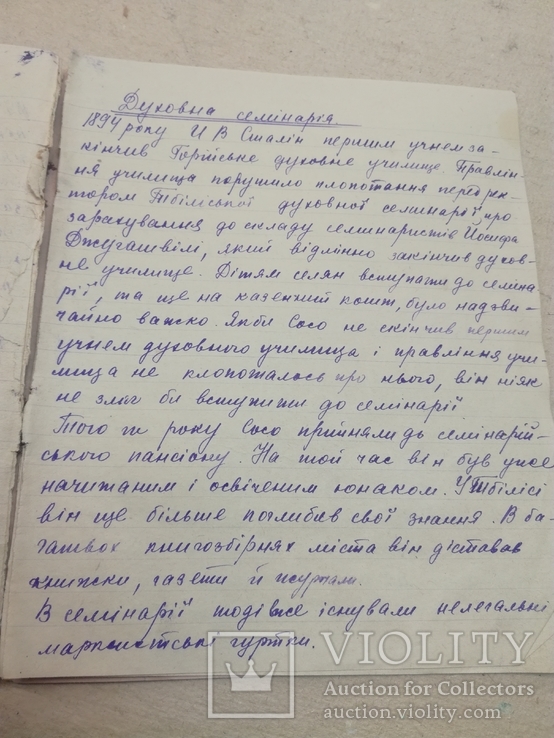 Духовна семінарія.
1894 року И В Сталін першим учнем за-
кінчив Горійське духовне училище. Правлін-
ня училища порушило клопотання перед рек-
тором Тбіліської духовної семінарії про
зарахування до складу семинаристів Йосифа
Джугашвілі, який відмінно закінчив духов-
не училище. Дітям селян вступати до семіна
рії, та ще на казенний кошт, було надзви-
чайно важко. Якби Сосо не скінчив першим
учнем духовного училища і правління учи-
лища не клопоталось про нього, він ніяк
не зміг би вступити до семінарії
Того ж року Сосо прийняли до семінарій-
ського пансіону. На той час він був уже
начитаним і освіченим юнаком. У Тбілісі
він ще більше поглибив свої знання. В ба-
гатьох книгозбірнях міста він діставав
книжки, газети й журнали.
В семінарії тоді вже існували нелегальні
марксистські гуртки.
VIOLITY
Auction for Collectors
auction.violity.com